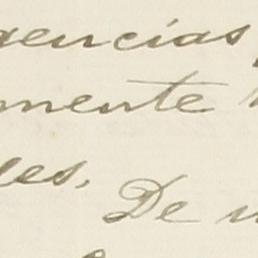 gencias
mente
les.
De